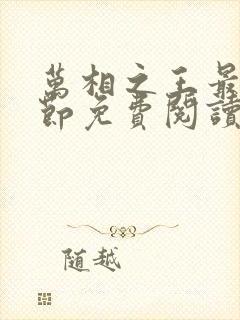 萬相之王最
節免費閱讀
随越